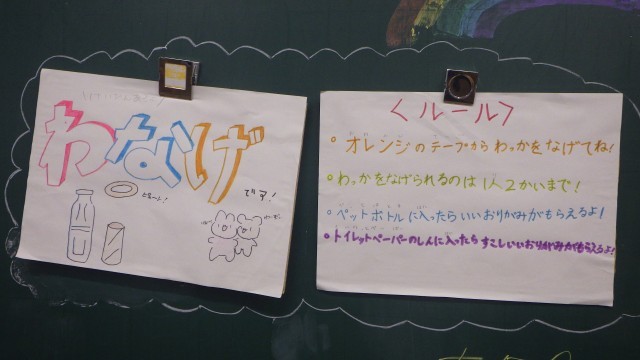 わなげ
でア!
<ルール>
• オレンジのテープからわっかをなげてね!
• わっかをなげられるのは1人2かいまで!
• ペットボトルに入ったらいいおりがみがもらえるよ!
• トイレットペーパーのしんに入ったらすこしいいおりがみがもらえるよ!